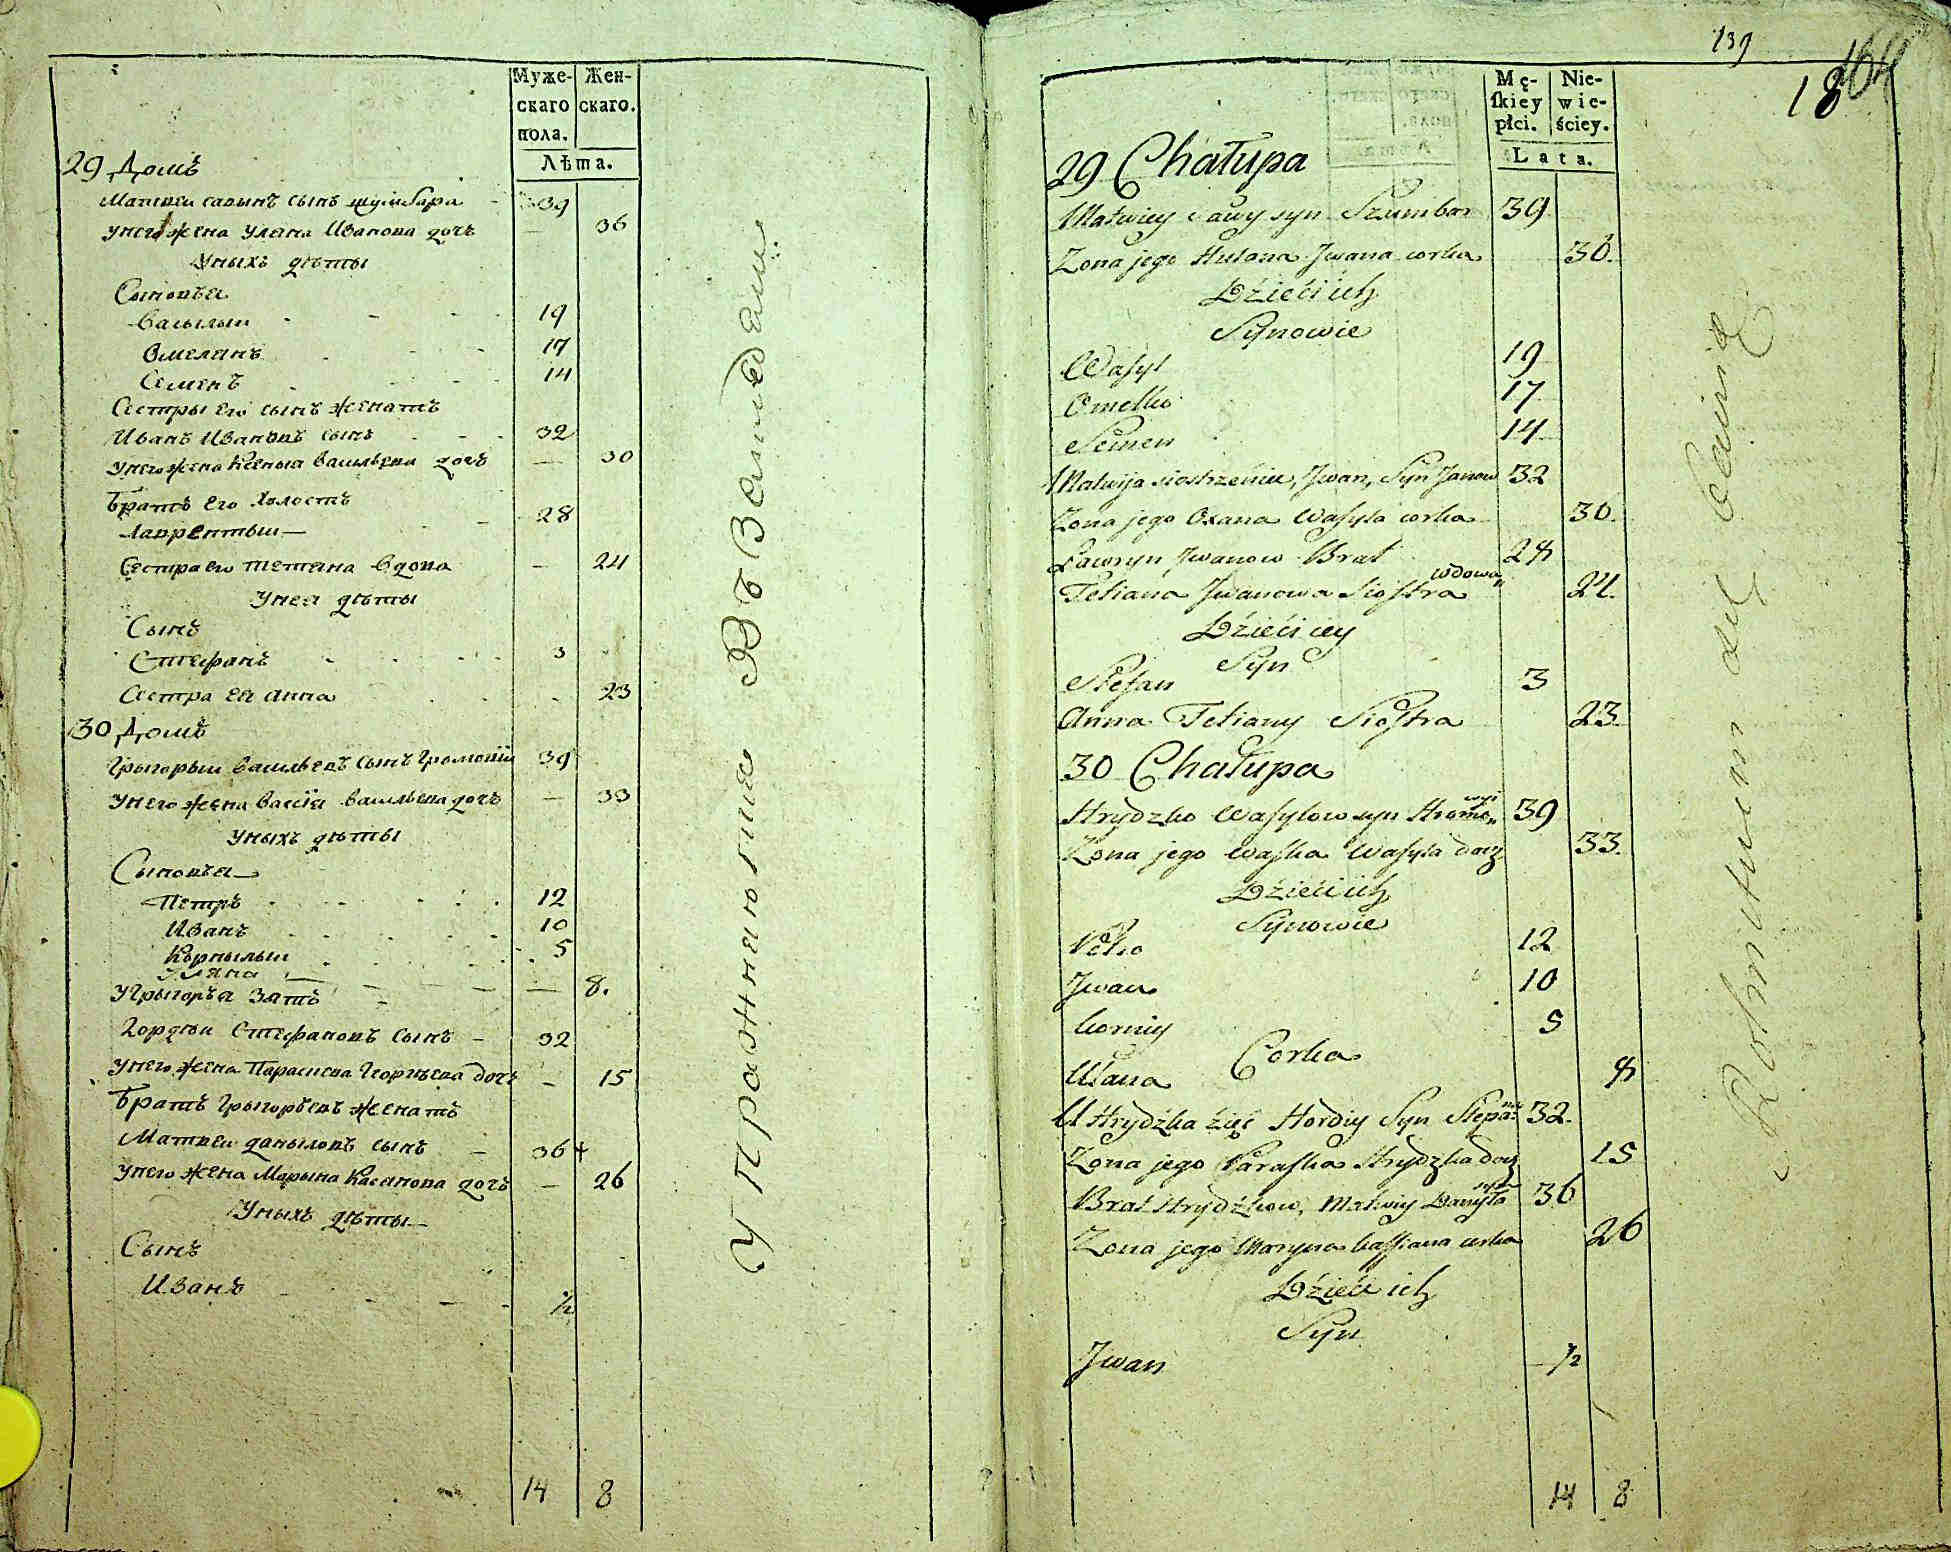 Муже-
скаго
пола.
Жен-
скаго.
Лѣта.
29 Домъ
Матвеи савынъ сынъ шумбара 39
унего жена улана Иванова дочъ — 36
Уныхъ дѣты
Сыновѣа
Василыи 19
Омелѧнъ 17
Семенъ 14
Сестры его сынъ женатъ
Иванъ Ивановъ сынъ 32
унего жена Ксеныа васильева дочъ — 30
Братъ его Холостъ
Лаврентыи — 28
Сестра его тетѧна вдова — 24
Унеа дѣты
Сынъ
Стефанъ 3
Сестра еа анна 23
30 Домъ
Грыгорыи васильевъ сынъ Громовіи 39
унего жена васкіа васильева дочъ — 33
Уныхъ дѣты
Сыновѣа —
Петръ 12
Иванъ 10
Корнылыи 5
Улѧна 8.
Угрыгорѣа зѧтъ
Гордѣи Стефановъ сынъ — 32
унего жена Параскева Григорѣева дочъ — 15
Братъ Грыгорѣевъ женатъ
Матвеи даныловъ сынъ — 36 +
унего жена Марына Касанова дочъ — 26
Уныхъ дѣты —
Сынъ
Иванъ ½
14 8
Упражнѧютсѧ Въ Земледелии
139
164
18
Mę-
ſkiey
płci.
Nie-
wie-
ściey.
Lata.
29 Chałupa
Matwiey Sawy syn Szumbar 39
Zona jego Hulana Jwana corka 36.
Dźieći ich
Synowie
Waſyl 19
Omelko 17
Semen 14
Matwija siostrzeniec, Jwan, Syn Janow 32
Zona jego Oxana Waſyla corka 30.
Ławryn Jwanow Brat 28
Tetiana Jwanowa Sioſtra wdowa 24.
Dźieći iey
Syn
Stefan 3
Anna Tetiany Sioſtra 23
30 Chałupa
Hrydzko Waſylow syn Hromowyi 39
Zona jego Waſka Waſyla docz 33.
Dźieći ich
Synowie
Petro 12
Jwan 10
Korniy 5
Corka
Ulana 8
U Hrydźka źięć Hordiy Syn Stepana 32.
Zona jego Paraſka Hrydzka docz 15
Brat Hrydźkow, Matwiy Danyła syn 36
Zona jego Maryna Kaſſiana corka 26
Dźieći ich
Syn
Jwan — ½
14 8